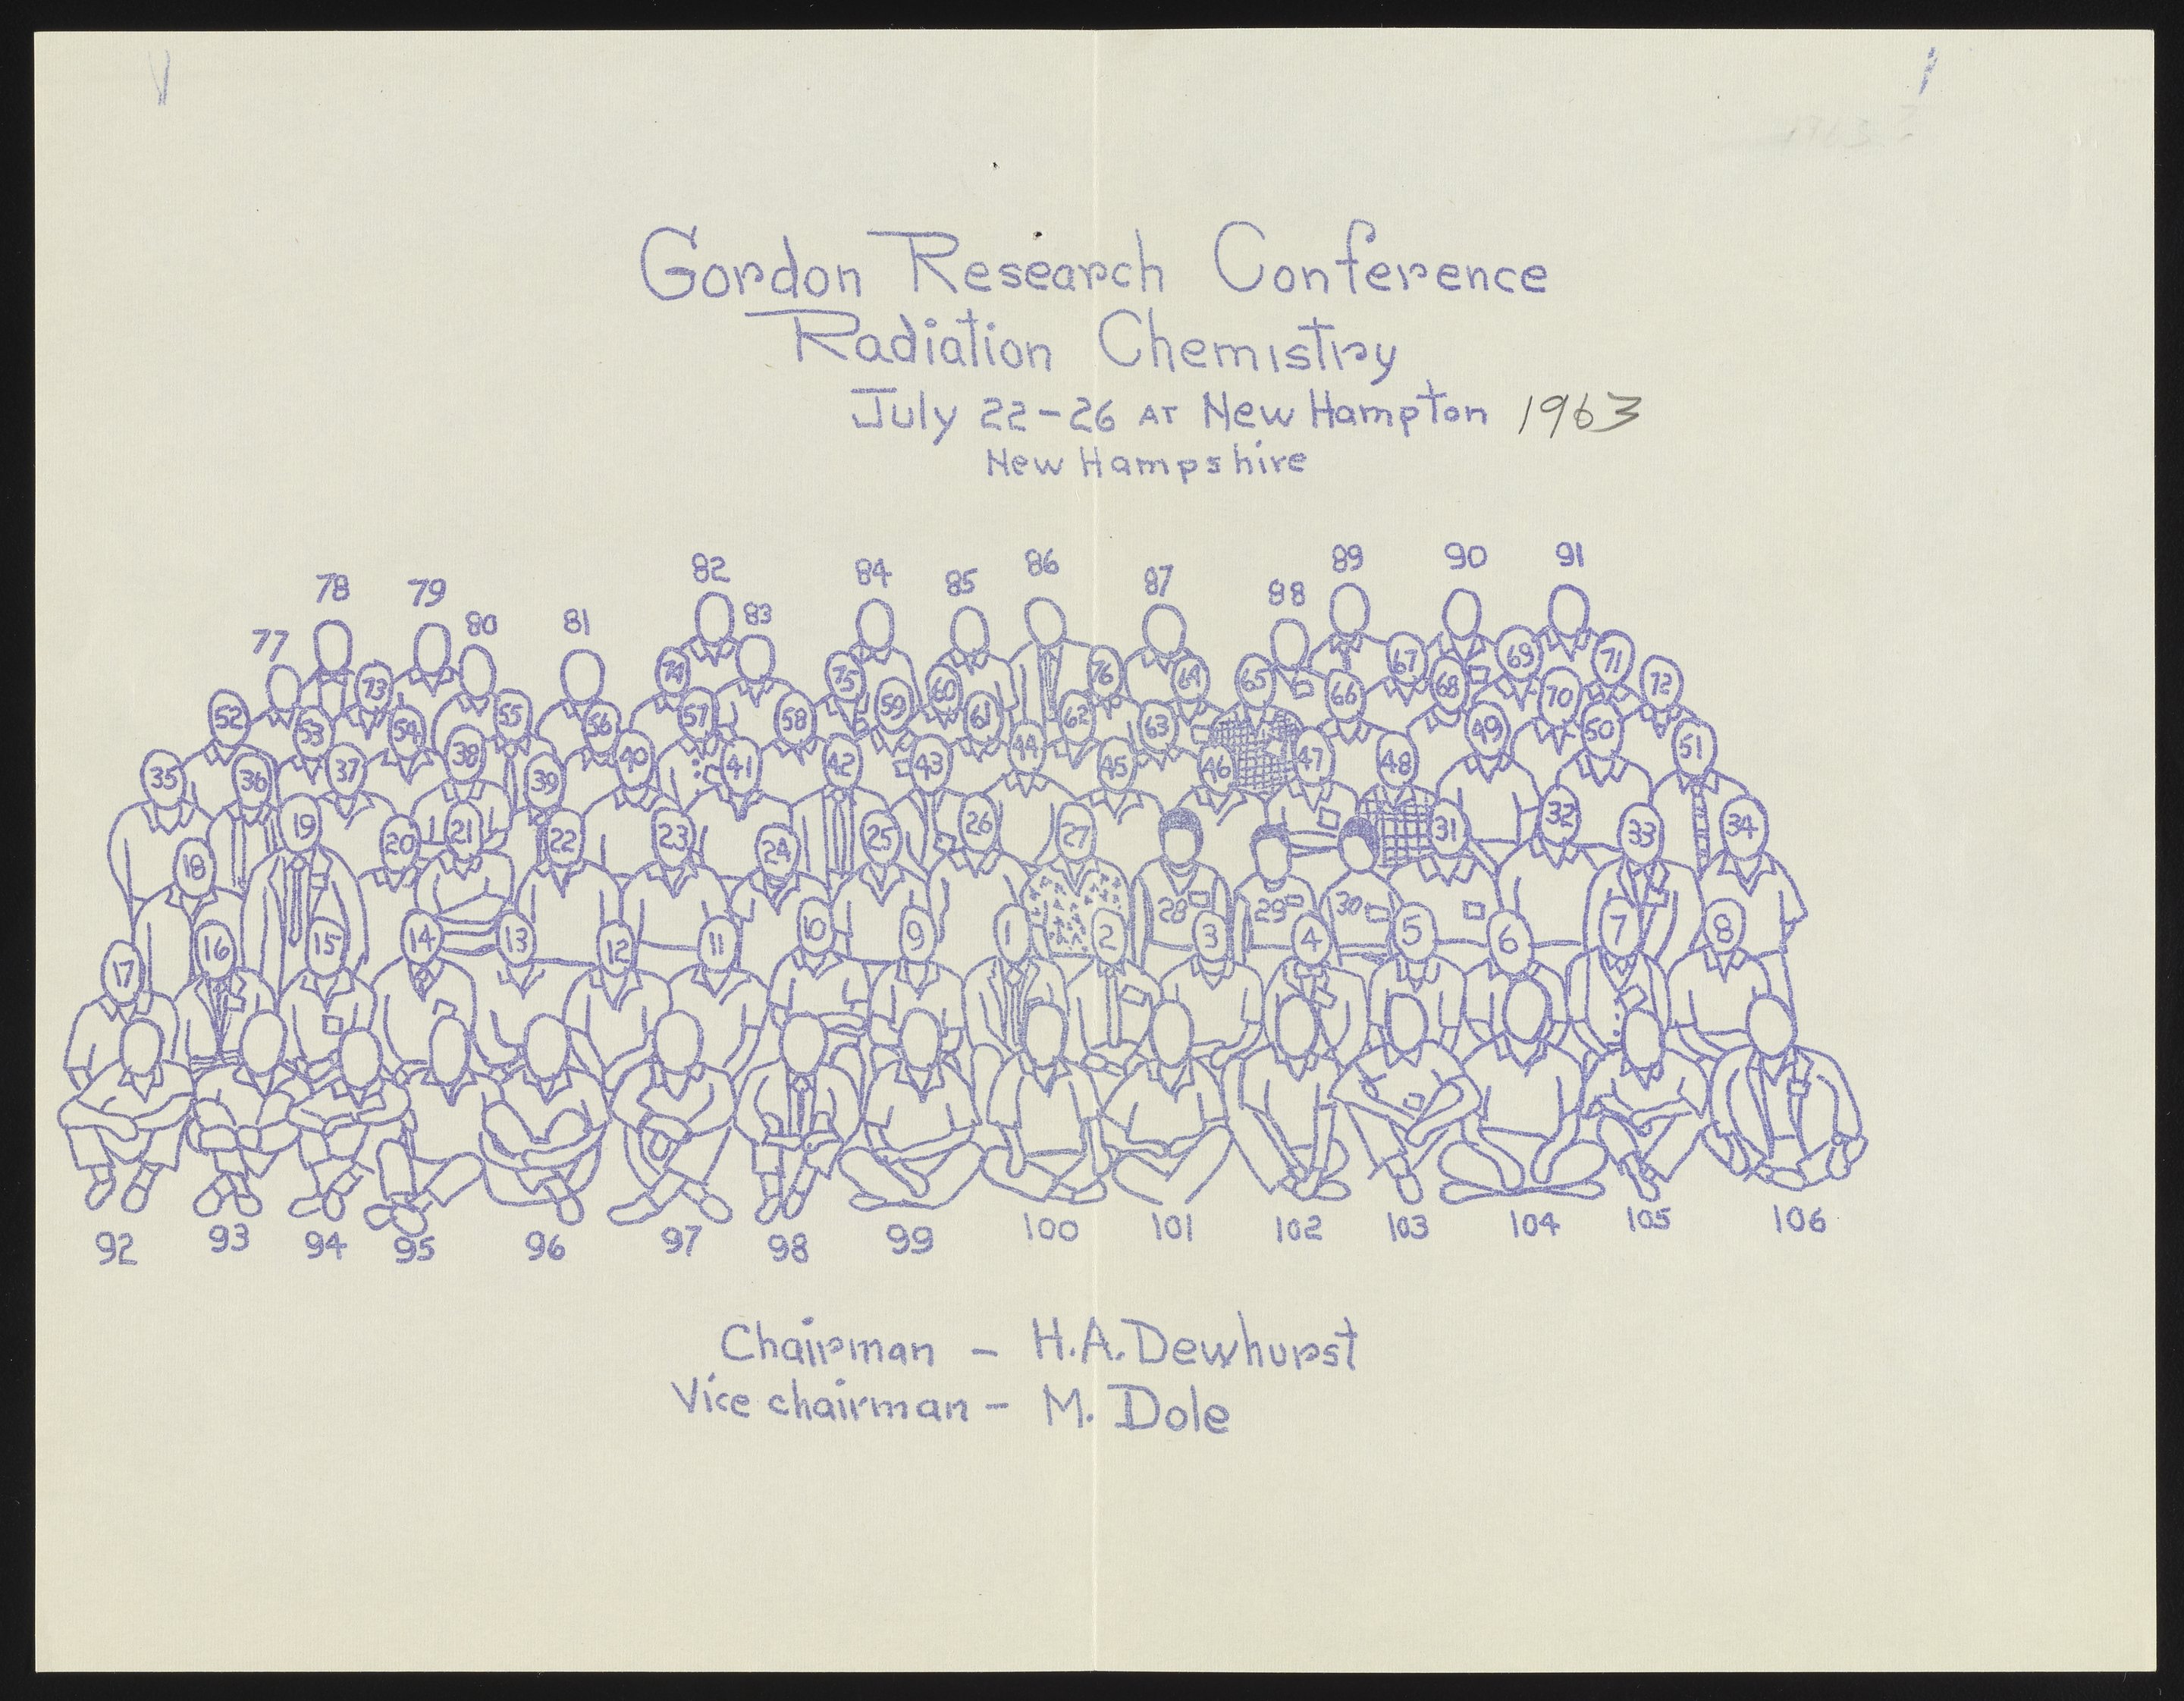 Gordon Research Conference
Radiation Chemistry
July 22-26 AT New Hampton 1963
New Hampshire
89 90 91
82 84 85 86 87 88
78 79 80 81 83
77
74 75 76 64 65 67 69 71 72
73 60 66 68 70
52 53 54 55 56 57 58 59 61 62 63 49 50 51
35 36 37 38 39 40 41 42 43 44 45 46 47 48
18 19 20 21 22 23 24 25 26 27 31 32 33 34
28 29 30
17 16 15 14 13 12 11 10 9 1 2 3 4 5 6 7 8
92 93 94 95 96 97 98 99 100 101 102 103 104 105 106
Chairman - H.A. Dewhurst
Vice chairman - M. Dole